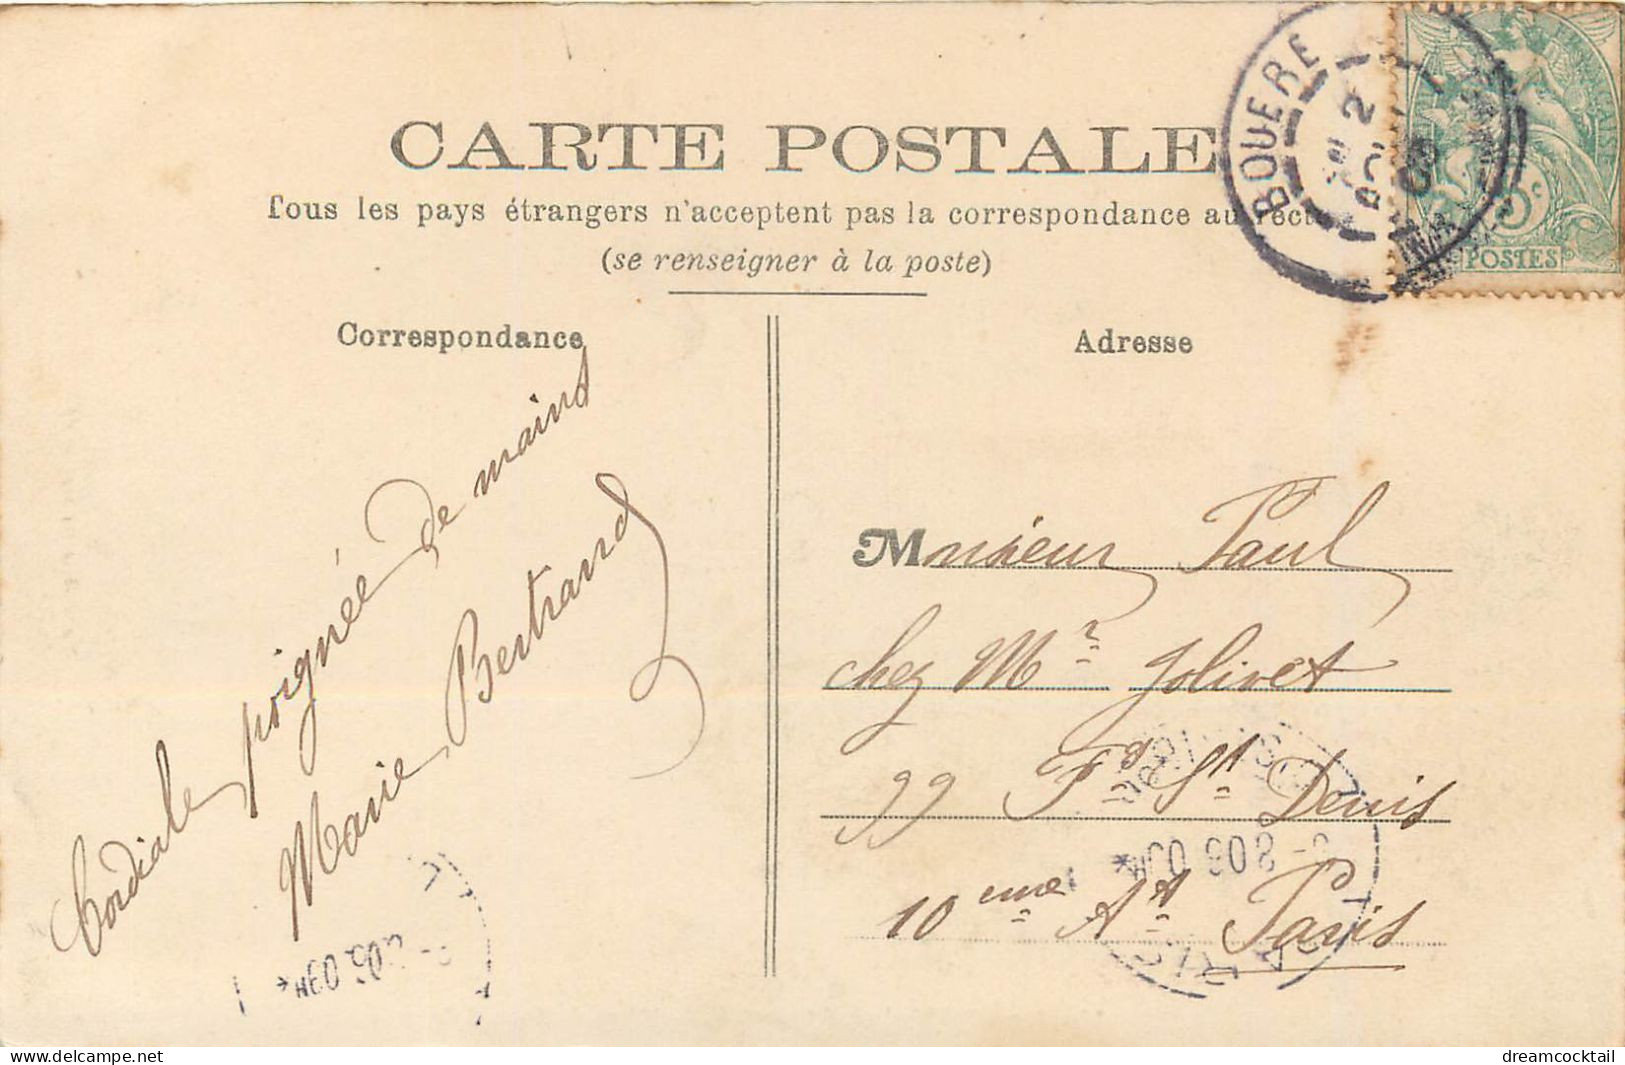 CARTE POSTALE
Tous les pays étrangers n'acceptent pas la correspondance au recto
(se renseigner à la poste)
Correspondance
Adresse
BOUERE
POSTES
5c
Cordiale poignée de mains
Marie Bertrand
Monsieur Paul
chez Mr Jolivet
99 Fg St Denis
10 eme At Paris
delcampe.net
dreamcocktail